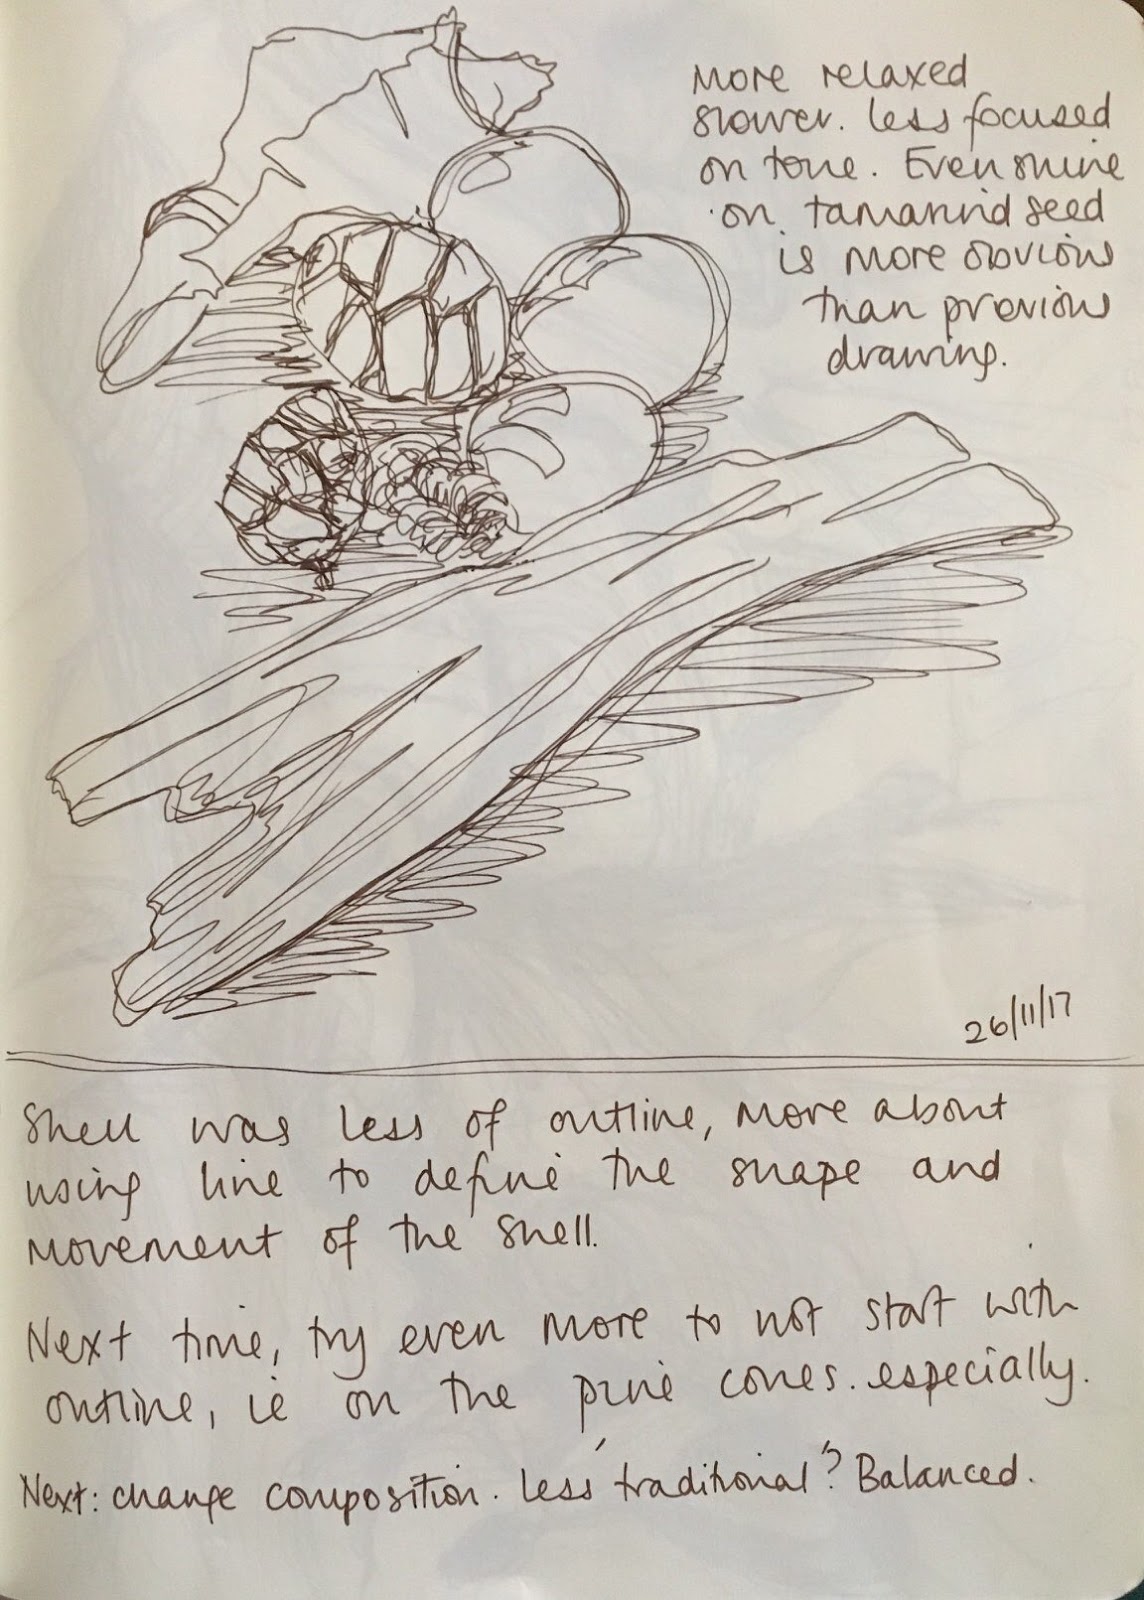 More relaxed
slower. less focused
on tone. Even shine
on tamarind seed
is more obvious
than previous
drawing.
26/11/17
Shell was less of outline, more about
using line to define the shape and
movement of the shell.
Next time, try even more to not start with
outline, ie on the pine cones. especially.
Next: change composition. less 'traditional'? Balanced.